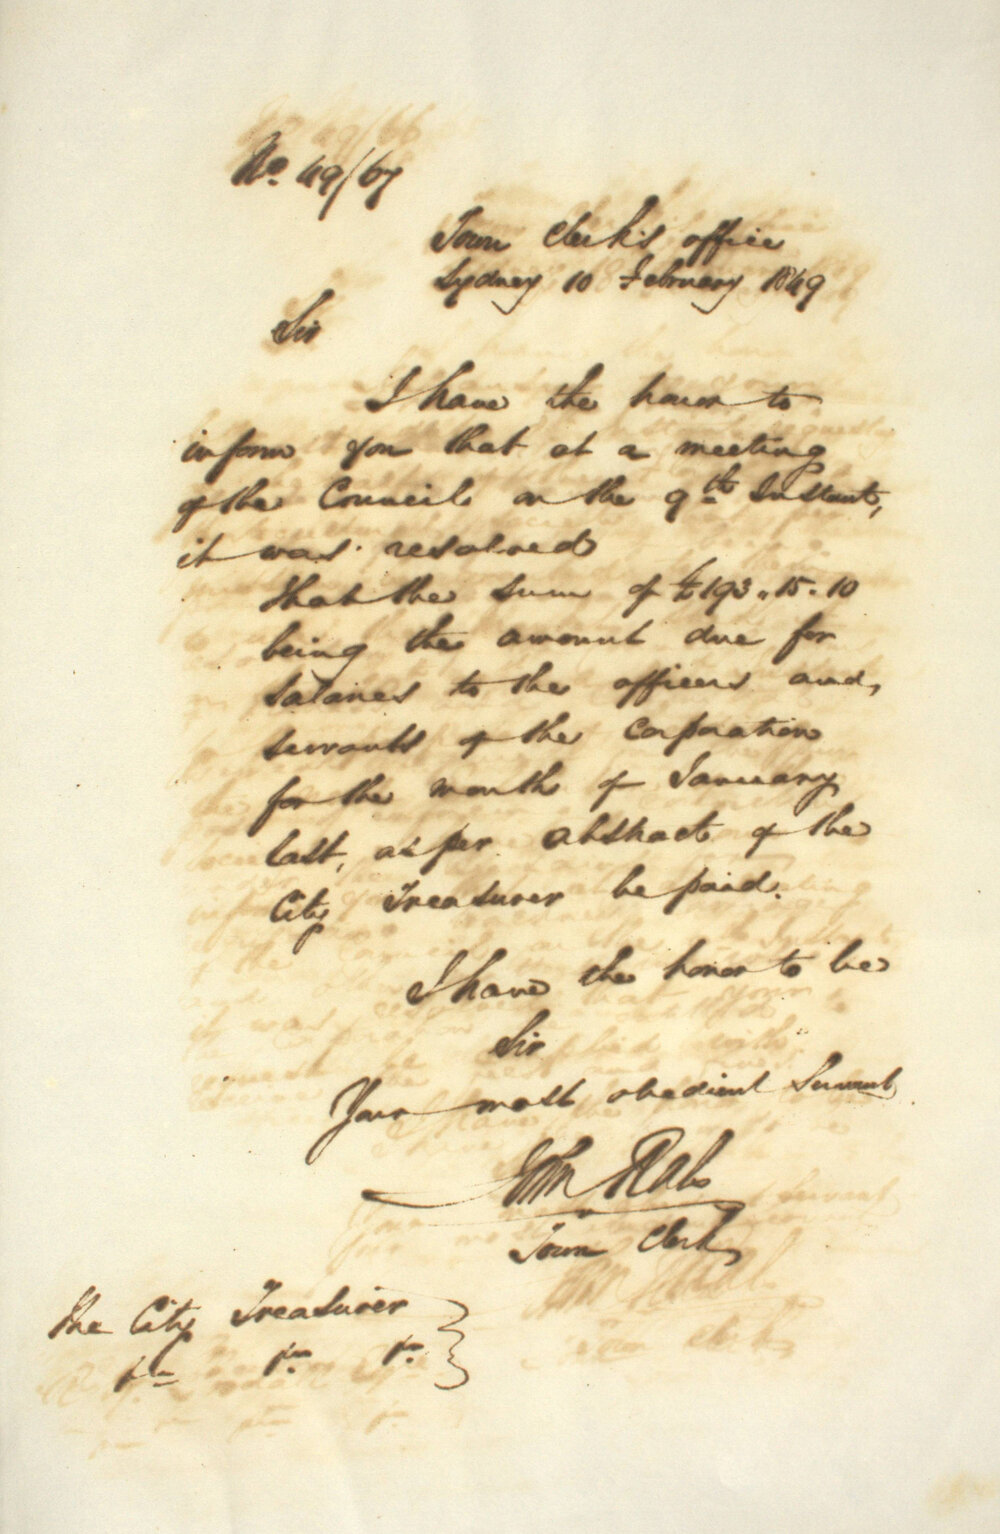 No. 49/67
Town Clerk's office
Sydney 10 February 1849
Sir
I have the honor to
inform you that at a meeting
of the Council on the 9th Instant,
it was resolved
that the sum of £193.15.10
being the amount due for
salaries to the officers and
servants of the Corporation
for the month of January
last, as per abstract of the
City Treasurer be paid.
I have the honor to be
Sir
Your most obedient Servant
John Rae
Town Clerk
The City Treasurer